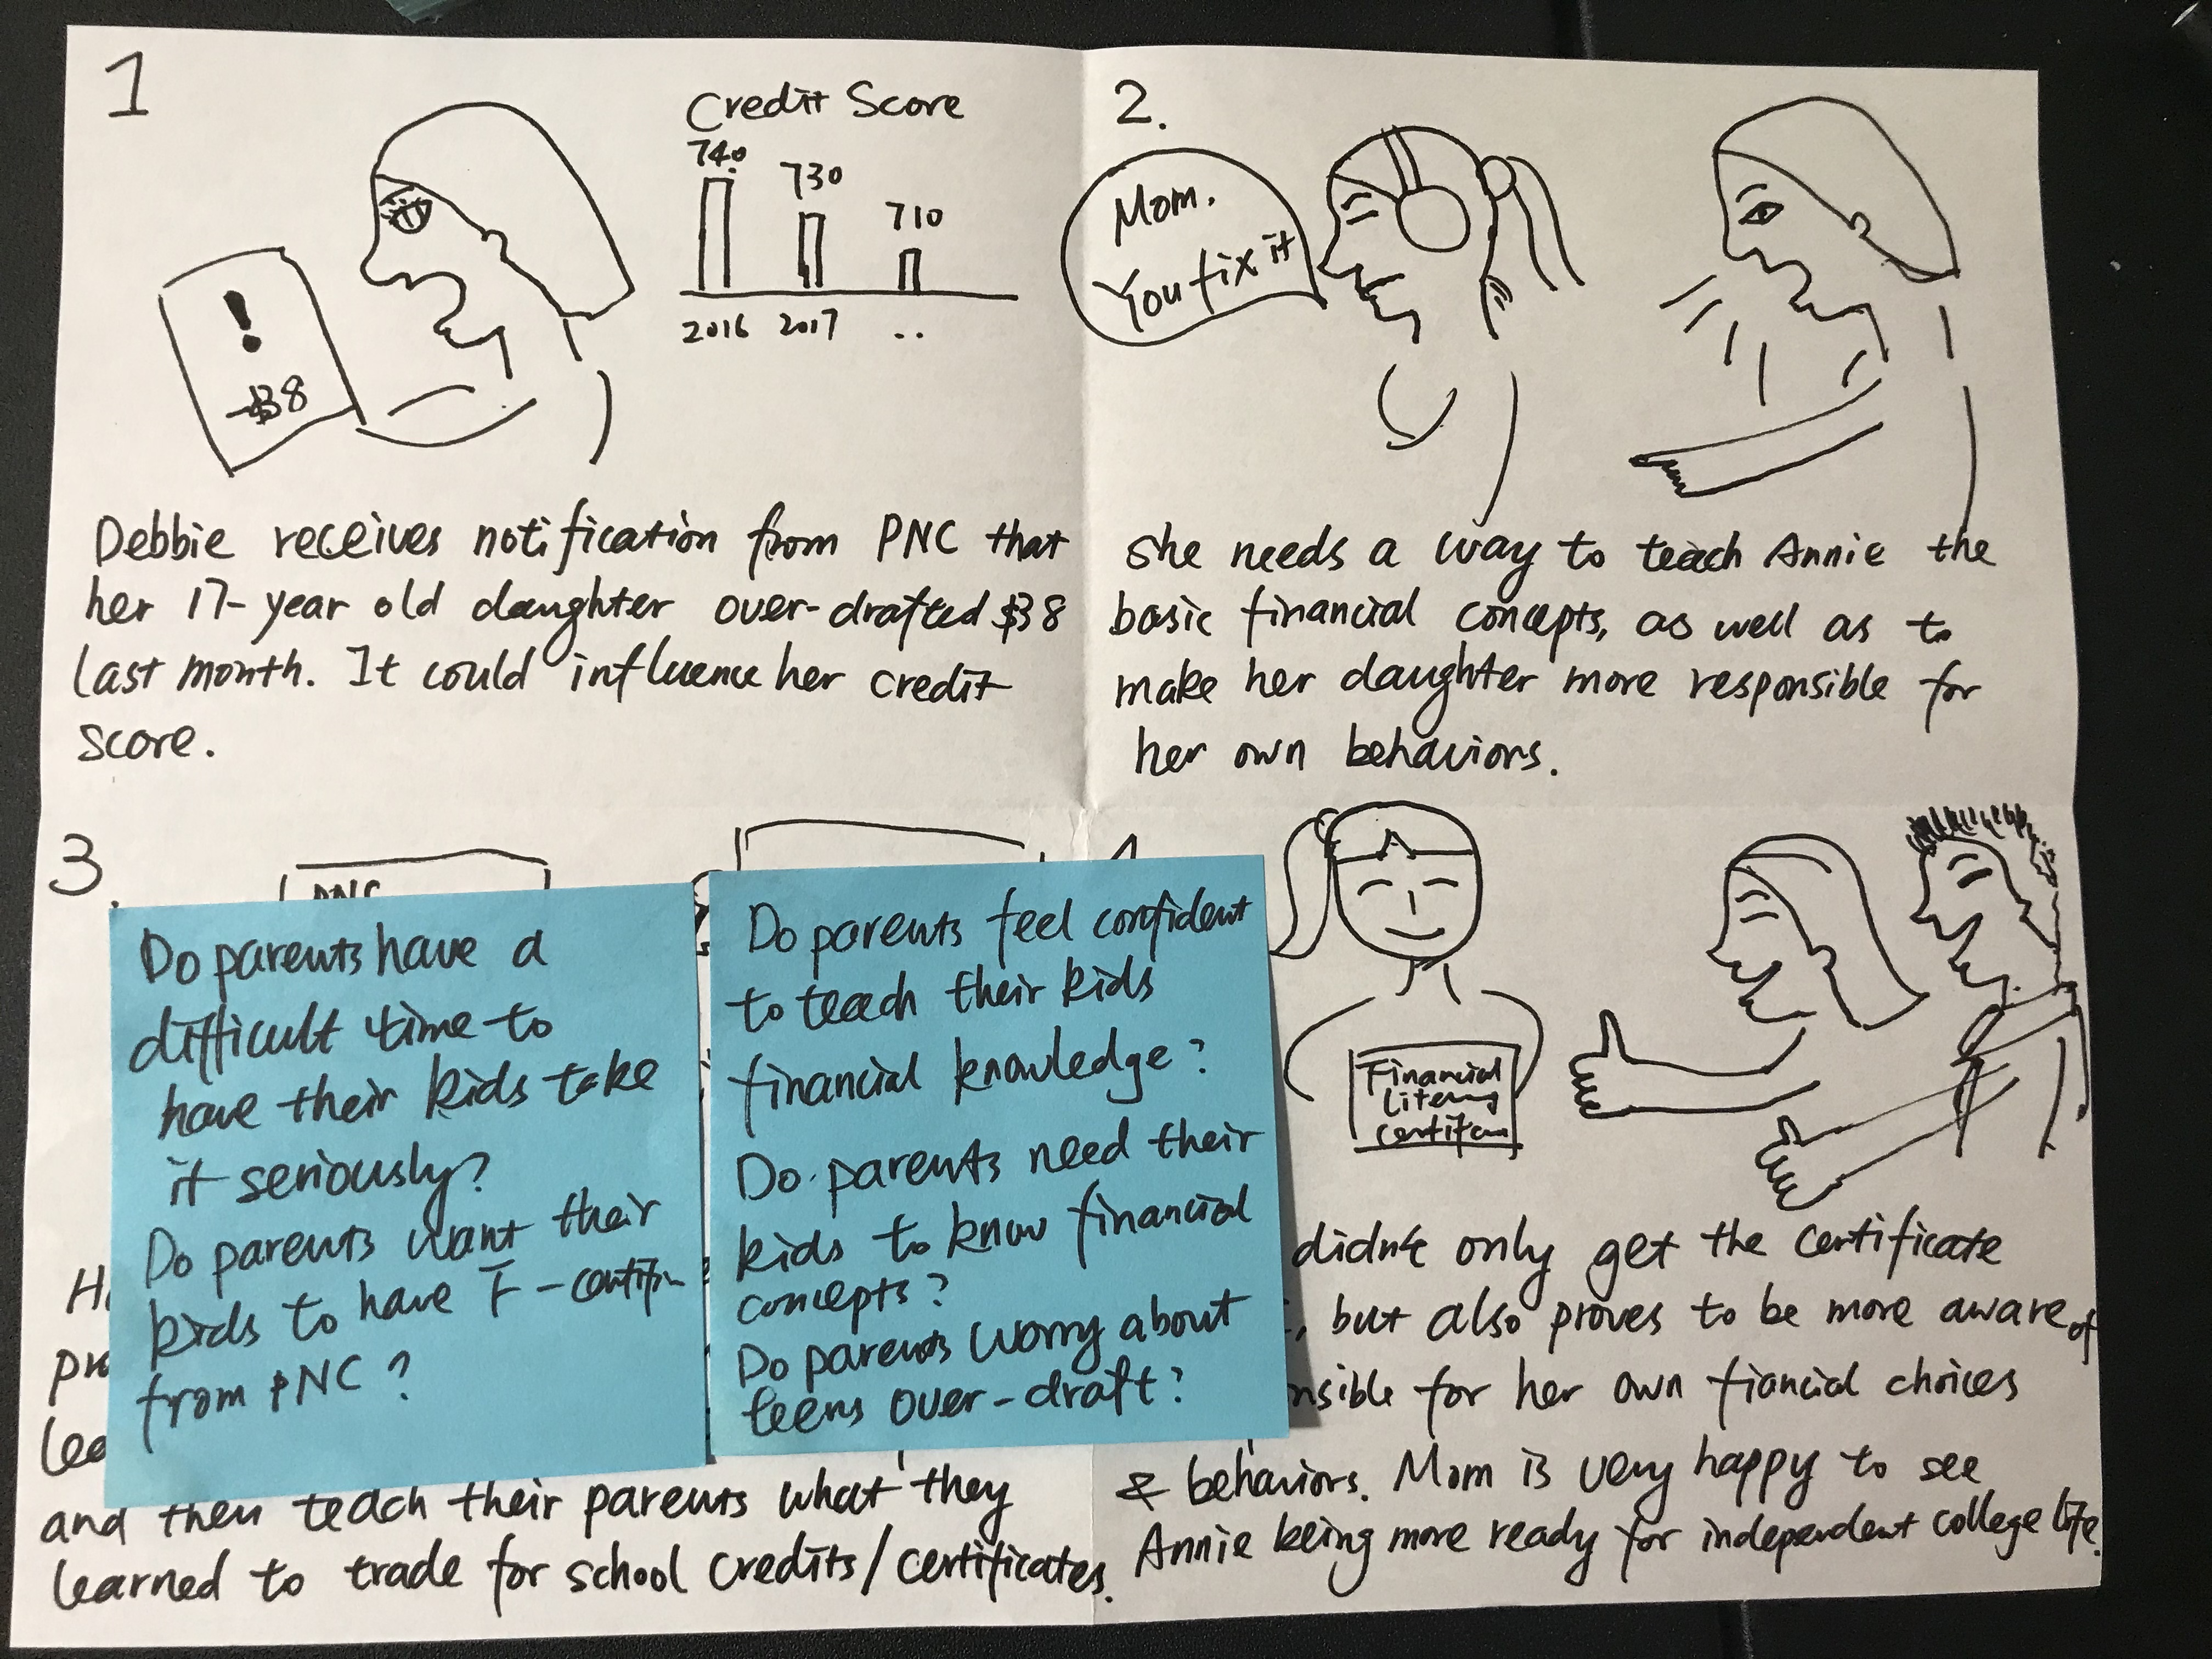 1
!
-$38
Credit Score
740
730
710
2016 2017 ..
Debbie receives notification from PNC that
her 17-year old daughter over-drafted $38
last month. It could influence her credit
score.
2.
Mom.
You fix it
she needs a way to teach Annie the
basic financial concepts, as well as to
make her daughter more responsible for
her own behaviors.
3.
PNC
Do parents have a
difficult time to
have their kids take
it seriously?
Do parents want their
kids to have F-
from PNC?
Do parents feel confident
to teach their kids
financial knowledge?
Do parents need their
kids to know financial
concepts?
Do parents worry about
teens over-draft?
and then teach their parents what they
learned to trade for school credits/certificates.
Financial
didn't only get the certificate
, but also proves to be more aware of
for her own fiancial choices
& behaviors. Mom is very happy to see
Annie being more ready for independent college life.